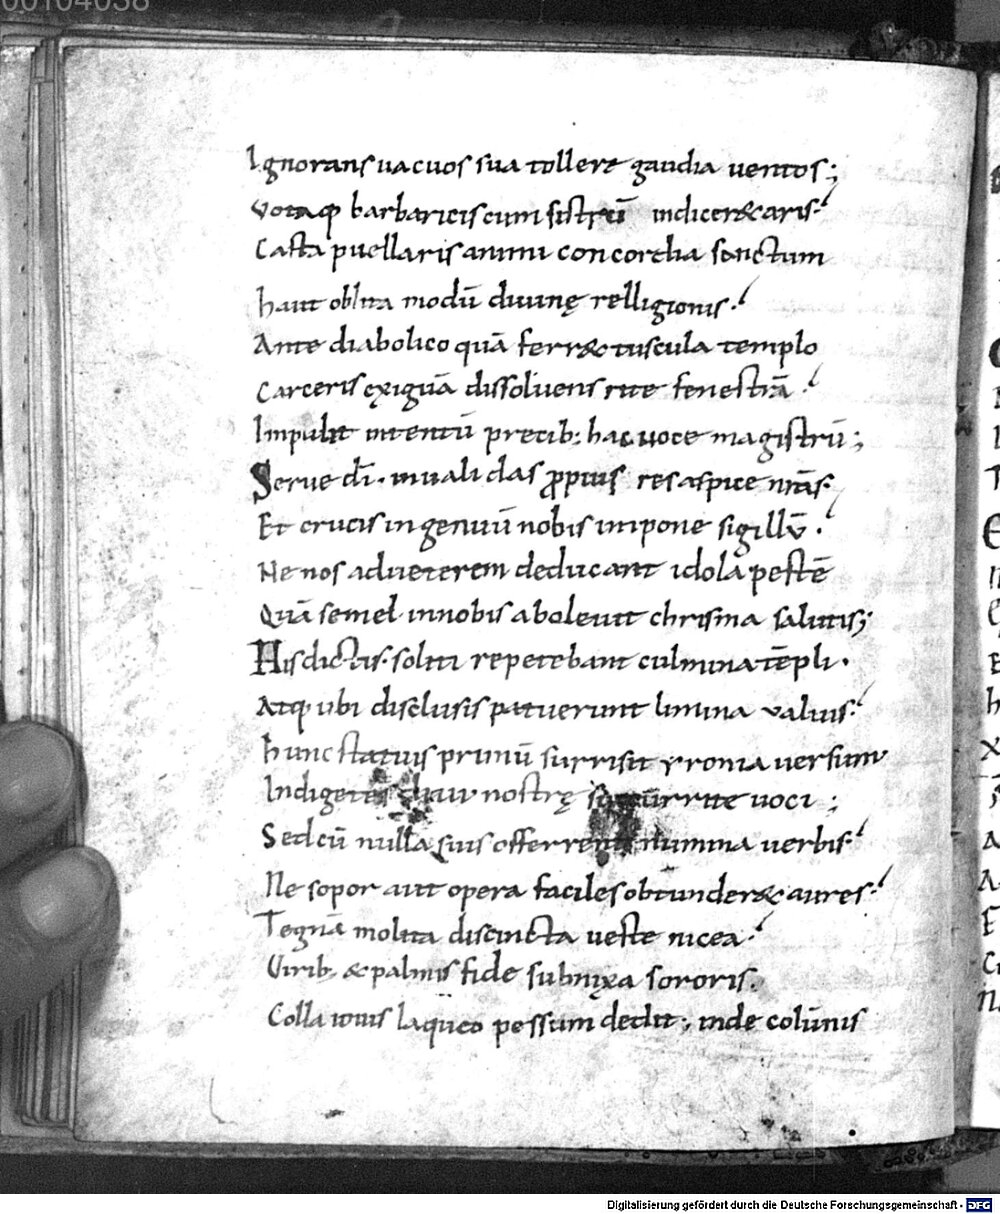 00104038
Ignorans uacuos sua tollere gaudia uentos;
Votaq; barbaricis cum sistrū indicer& aris.
Casta puellaris animi concordia sanctum
haut oblita modū diuinę relligionis.
Ante diabolico quā ferr& tuscula templo
Carceris exiguā dissoluens rite fenestrā.
Impulit intentū precib; hac uoce magistrū;
Serue dī. inualidas ꝓpius res aspice nrās.
Et crucis ingenuū nobis impone sigillū.
Ne nos ad ueterem deducant idola pestē
Quā semel innobis aboleuit chrisma salutis;
His dictis. soliti repetebant culmina tēpli.
Atq; ubi disclusis patuerunt limina ualuis.
hunc statuis primū surrisit yronia uersum
Indigetes nostrę uoci;
Sed cū nulla suis offerrent numina uerbis.
Ne sopor aut opera faciles obtunder& aures.
Tegnā molita discincta ueste nicea.
Virib; & palmis fide subnixa sororis.
Colla iouis laqueo pessum dedit; inde colūnis
Digitalisierung gefördert durch die Deutsche Forschungsgemeinschaft - DFG